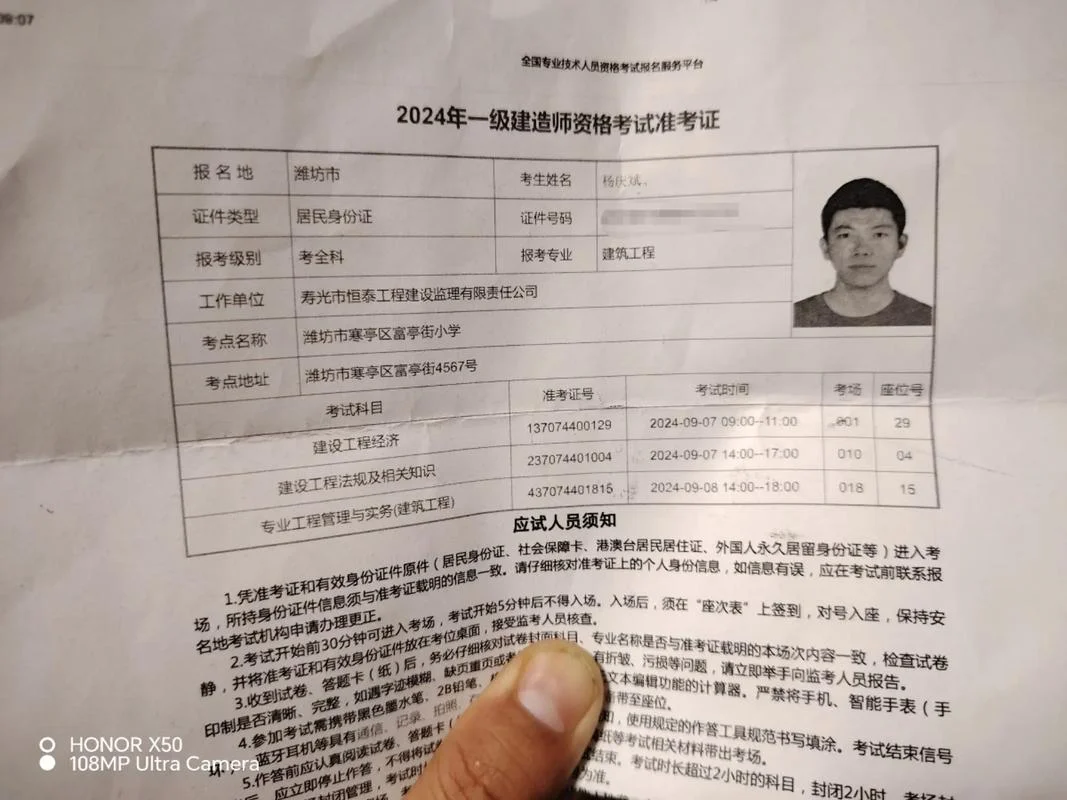 09:07
全国专业技术人员资格考试报名服务平台
2024年一级建造师资格考试准考证
报名地 潍坊市 考生姓名 杨庆斌
证件类型 居民身份证 证件号码
报考级别 考全科 报考专业 建筑工程
工作单位 寿光市恒泰工程建设监理有限责任公司
考点名称 潍坊市寒亭区富亭街小学
考点地址 潍坊市寒亭区富亭街4567号
考试科目 准考证号 考试时间 考场 座位号
建设工程经济 137074400129 2024-09-07 09:00--11:00 001 29
建设工程法规及相关知识 237074401004 2024-09-07 14:00--17:00 010 04
专业工程管理与实务(建筑工程) 437074401815 2024-09-08 14:00--18:00 018 15
应试人员须知
1.凭准考证和有效身份证件原件（居民身份证、社会保障卡、港澳台居民居住证、外国人永久居留身份证等）进入考
场，所持身份证件信息须与准考证载明的信息一致。请仔细核对准考证上的个人身份信息，如信息有误，应在考试前联系报
名地考试机构申请办理更正。
2.考试开始前30分钟可进入考场，考试开始5分钟后不得入场。入场后，须在“座次表”上签到，对号入座，保持安
静，并将准考证和有效身份证件放在考位桌面，接受监考人员核查。
3.收到试卷、答题卡（纸）后，务必仔细核对试卷封面科目、专业名称是否与准考证载明的本场次内容一致，检查试卷
印制是否清晰、完整，如遇字迹模糊、缺页重页或 有折皱、污损等问题，请立即举手向监考人员报告。
4.参加考试需携带黑色墨水笔、2B铅笔、 文本编辑功能的计算器。严禁将手机、智能手表（手
环）、蓝牙耳机等具有通信、记录、拍照、 带至座位。
5.作答前应认真阅读试卷、答题卡（ 知，使用规定的作答工具规范书写填涂。考试结束信号
后，应立即停止作答，不得将试 纸等考试相关材料带出考场。
封闭管理，考试时 结束。考试时长超过2小时的科目，封闭2小时，考场封
为准。
HONOR X50
108MP Ultra Camera